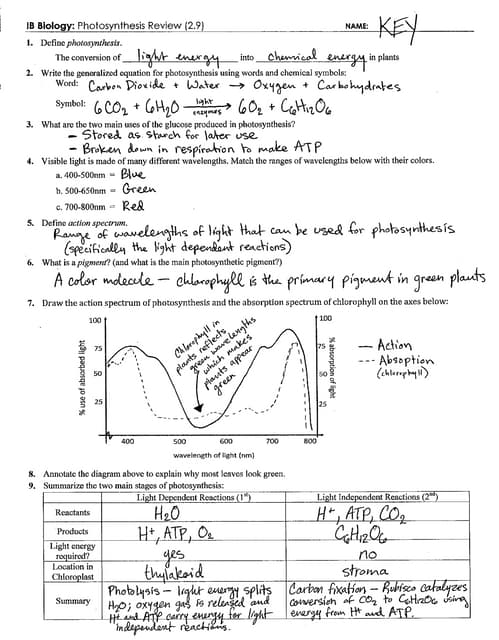 IB Biology: Photosynthesis Review (2.9)
NAME: KEY
1. Define photosynthesis.
The conversion of light energy into chemical energy in plants
2. Write the generalized equation for photosynthesis using words and chemical symbols:
Word: Carbon Dioxide + Water → Oxygen + Carbohydrates
Symbol: 6CO2 + 6H2O light enzymes → 6O2 + C6H12O6
3. What are the two main uses of the glucose produced in photosynthesis?
- Stored as starch for later use
- Broken down in respiration to make ATP
4. Visible light is made of many different wavelengths. Match the ranges of wavelengths below with their colors.
a. 400-500nm = Blue
b. 500-650nm = Green
c. 700-800nm = Red
5. Define action spectrum.
Range of wavelengths of light that can be used for photosynthesis
(specifically the light dependent reactions)
6. What is a pigment? (and what is the main photosynthetic pigment?)
A color molecule - chlorophyll is the primary pigment in green plants
7. Draw the action spectrum of photosynthesis and the absorption spectrum of chlorophyll on the axes below:
100
75
50
25
% use of absorbed light
Chlorophyll in
plants reflects
green wavelengths
which makes
plants appear
green
100
75
50
25
% absorption of light
— Action
--- Absoption
(chlorophyll)
400 500 600 700 800
wavelength of light (nm)
8. Annotate the diagram above to explain why most leaves look green.
9. Summarize the two main stages of photosynthesis:
Light Dependent Reactions (1st) Light Independent Reactions (2nd)
Reactants H2O H+, ATP, CO2
Products H+, ATP, O2 C6H12O6
Light energy
required? yes no
Location in
Chloroplast thylakoid stroma
Summary
Photolysis - light energy splits
H2O; oxygen gas is released and
H+ and ATP carry energy for light
independent reactions.
Carbon fixation - Rubisco catalyzes
conversion of CO2 to C6H12O6 using
energy from H+ and ATP.